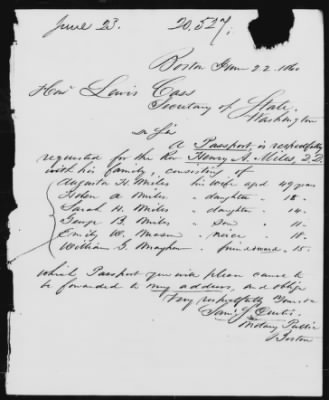 June 23. 20,527,
Boston June 22. 1860
Hon Lewis Cass
Secretary of State.
Washington
Dr Sir
A Passport, is respectfully
requested for the Rev Henry A. Miles, D.D.
with his family, consisting of
Augusta H. Miles his wife aged 49 years
Helen A Miles " daughter " 18.
Sarah H. Miles " daughter " 14.
George B. Miles " son " 11
Emily W. Mason " niece " 18.
William G. " 15.
which Passport you will please cause to
be forwarded to my address, and oblige
Very respectfully Yours &c
Saml. Curtis.
Notary Public
Boston